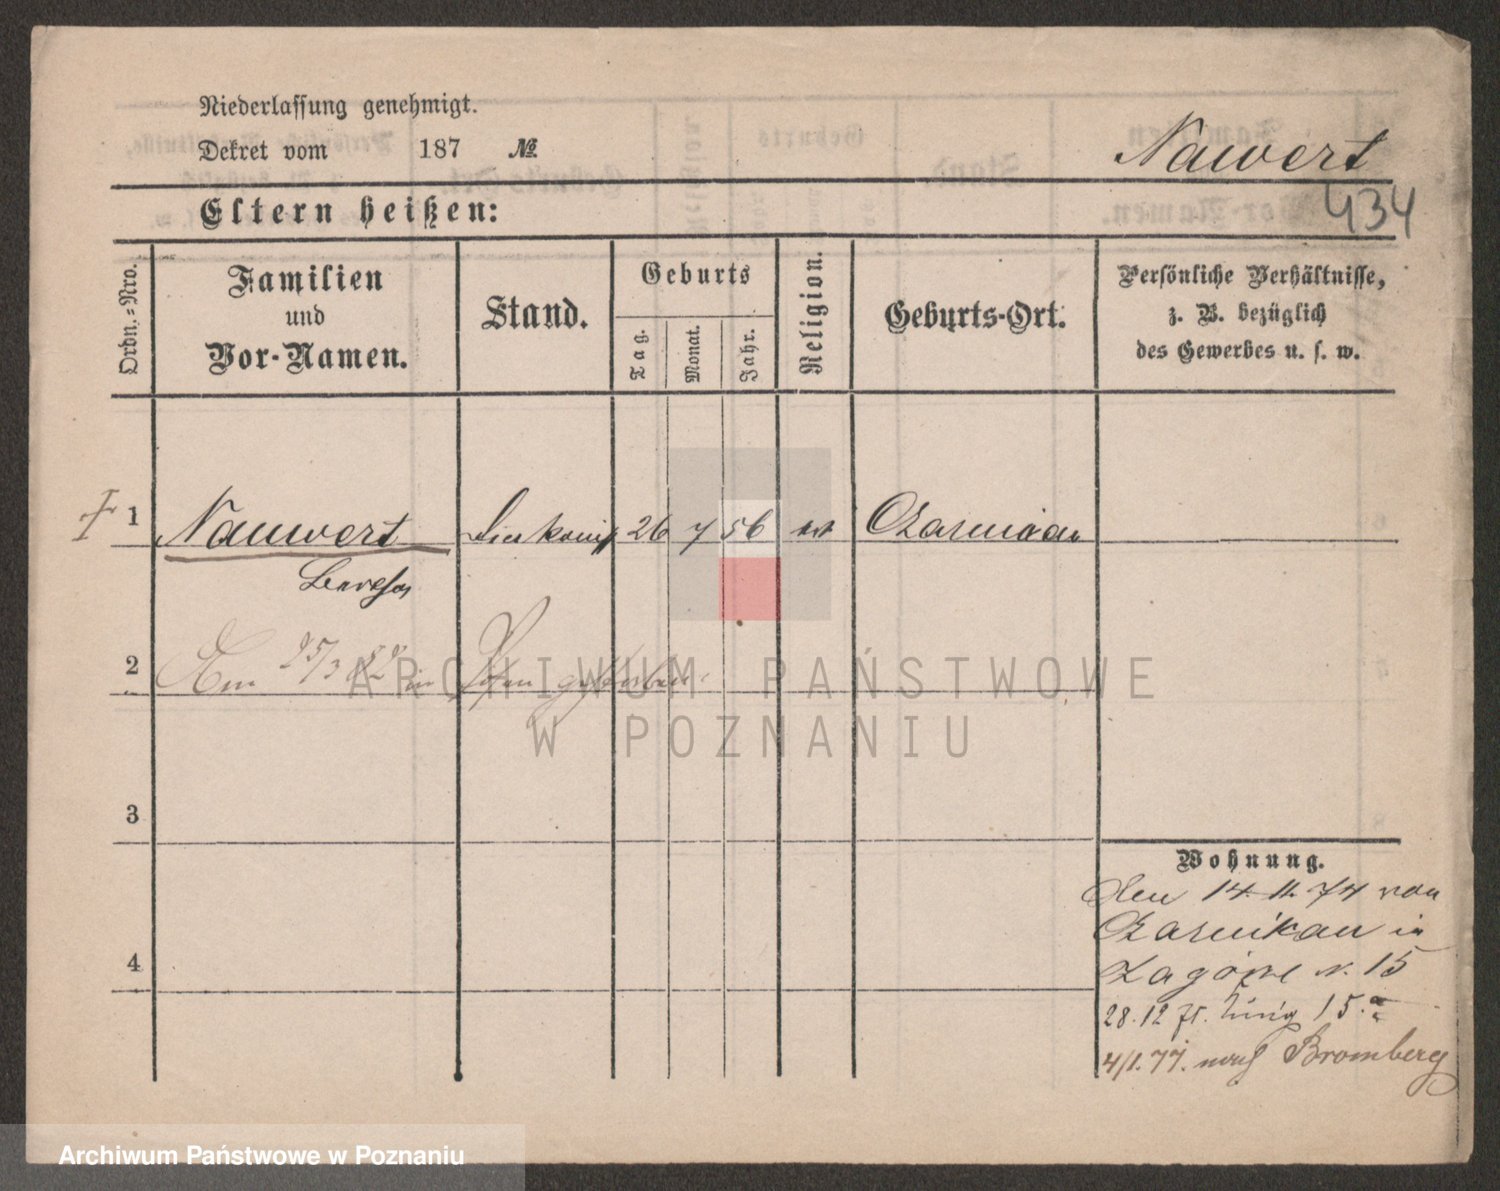 Niederlassung genehmigt.
Dekret vom 187 №
Nawert
Eltern heißen:
434
Ordn.-Nro.
Familien
und
Vor-Namen.
Stand.
Geburts
Tag.
Monat.
Jahr.
Religion.
Geburts-Ort.
Persönliche Verhältnisse,
z. B. bezüglich
des Gewerbes u. s. w.
1 Nauwert 26 7 56 Czarnikau
2 Am 25/3 82 in Posen gestorben.
ARCHIWUM PAŃSTWOWE
W POZNANIU
3
Wohnung.
Den 14. 11. 74 von
Czarnikau in
4
Zagórze N. 15
28.12 15.
4/1. 77. nach Bromberg
Archiwum Państwowe w Poznaniu